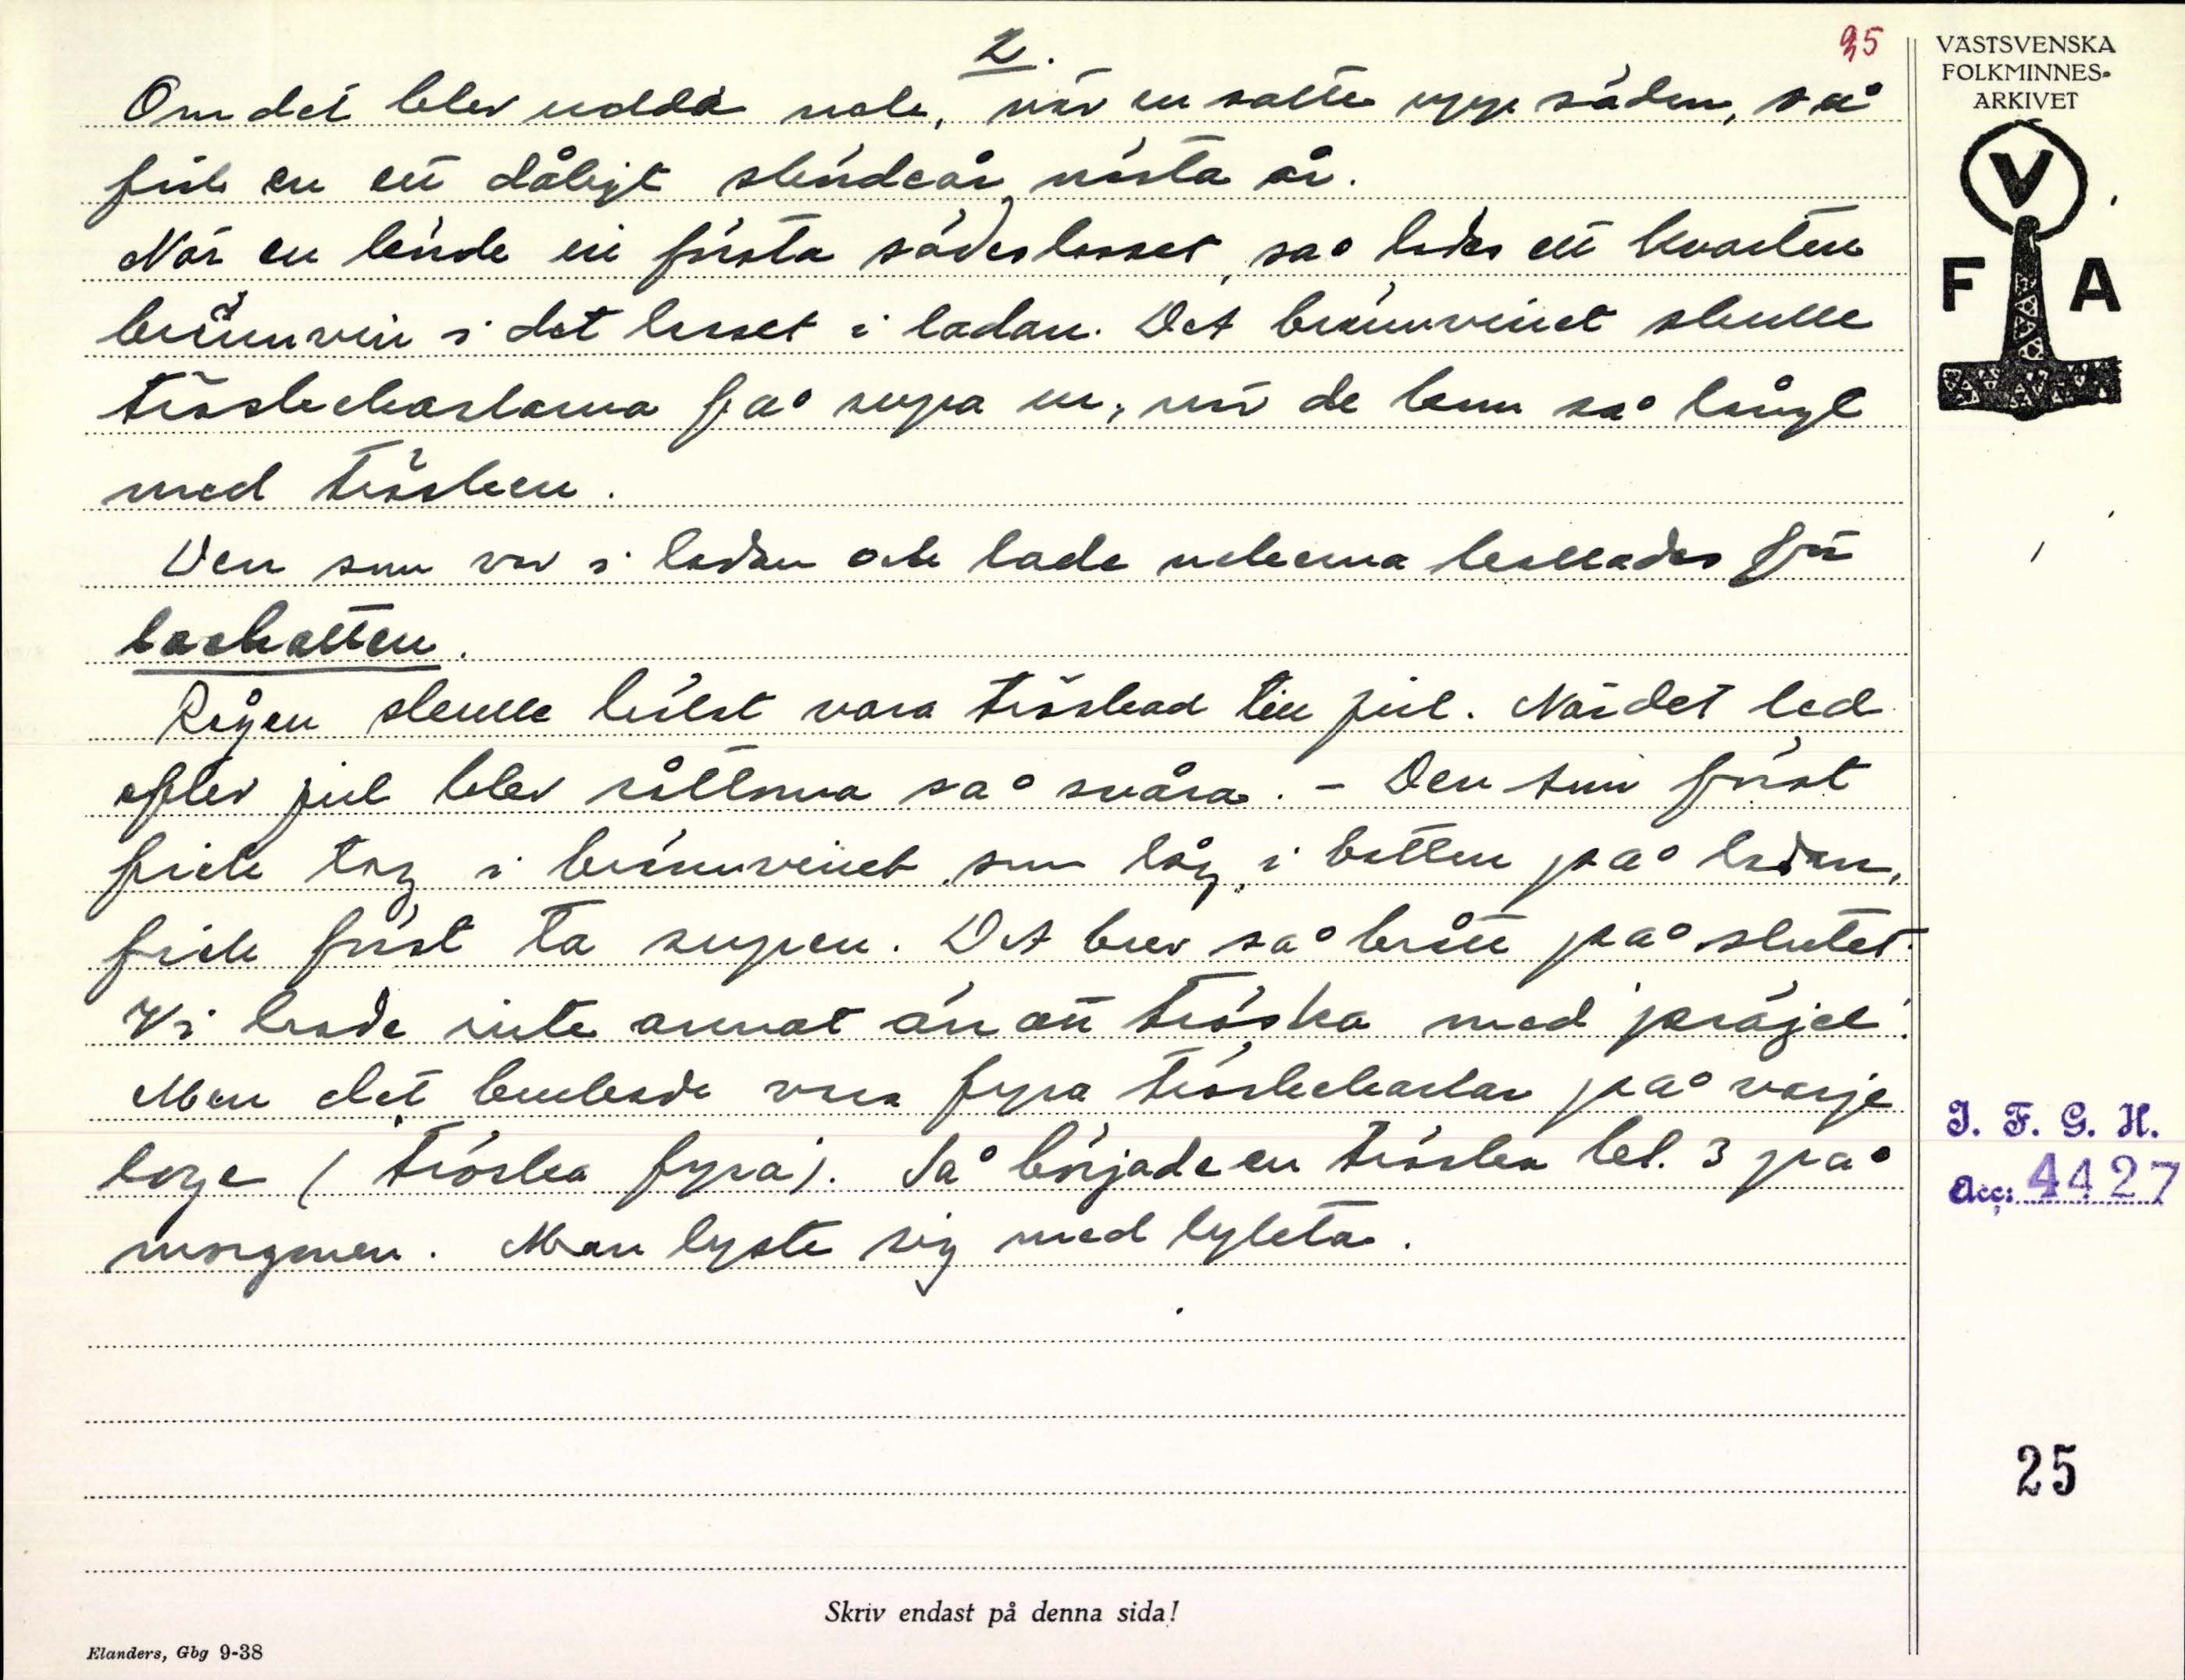 2.
35
Om det blev udda nek, när en satte upp säden, så
fick en ett dåligt skördeår nästa år.
När en körde in första sädeslasset, så lades ett kvarter
brännvin i det lasset i ladan. Det brännvinet skulle
tröskekarlarna få supa ur, när de kom så långt
med trösken.
Den som var i ladan och lade nekerna kallades för
lackatten.
Rågen skulle helst vara tröskad till jul. När det led
efter jul blev råttorna så svåra. - Den som först
fick tag i brännvinet som låg i botten på ladan,
fick först ta supen. Det blev så brått på slutet.
Vi hade inte annat än att tröska med präjel.
Men det brukade vara fyra tröskekarlar på varje
loge (tröska fyra). Så började en tröska kl. 3 på
morgonen. Man lyste sig med lykta.
VÄSTSVENSKA
FOLKMINNES-
ARKIVET
V
F A
I. F. G. H.
Acc: 4427
25
Skriv endast på denna sida!
Elanders, Gbg 9-38